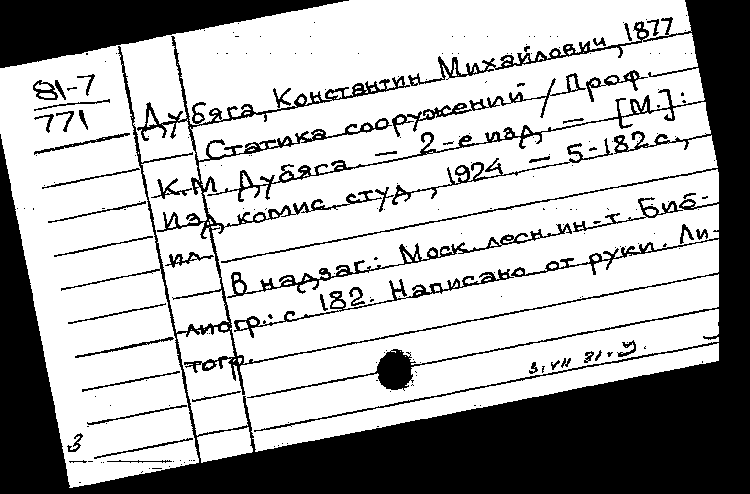 81-7
771
Дубяга, Константин Михайлович, 1877
Статика сооружений / Проф.
К.М. Дубяга. — 2-е изд. — [М.]:
Изд. комис. студ., 1924. — 5-182 с.,
ил.
В надзаг.: Моск. лесн. ин-т. Биб-
лиогр.: с. 182. Написано от руки. Ли-
тогр.
3.VII 81. У.
3